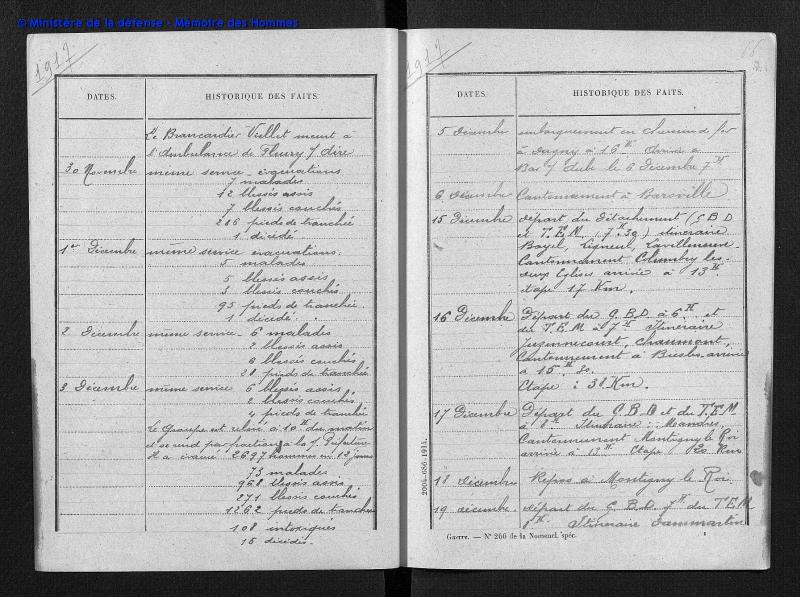 © Ministère de la défense - Mémoire des Hommes
1917
DATES. HISTORIQUE DES FAITS.
Le Brancardier Viollet meurt à
l'Ambulance de Fleury s/ Aire
30 Novembre même service - évacuations
7 malades
12 blessés assis
7 blessés couchés
286 pieds de tranchée
1 décédé
1er Décembre même service évacuations:
5 malades
5 blessés assis
3 blessés couchés
95 pieds de tranchée
1 décédé.
2 Décembre même service - 6 malades
2 blessés assis
6 blessés couchés
28 pieds de tranchée
3 Décembre même service 6 blessés assis
2 blessés couchés
4 pieds de tranchée
Le Groupe est relevé à 10H du matin
et se rend par à la
Il a évacué 2697 hommes en 12 jours
73 malades
968 blessés assis
271 blessés couchés
1262 pieds de tranchée
108 intoxiqués
15 décédés.
1917
DATES. HISTORIQUE DES FAITS.
5 Décembre embarquement en chemin de fer
à Dugny à 16H Arrivée à
Bar s/ Aube le 6 Décembre 7H
6 Décembre Cantonnement à Baroville
15 Décembre départ du Détachement (G.B.D
et T.E.M. (7H30) itinéraire
Bayel, Lignol, Lavilleneuve.
Cantonnement Colombey les-
deux Eglises arrivée à 13H
étape 17 Km.
16 Décembre Départ du G.B.D. à 6H et
du T.E.M à 7H Itinéraire
Juzennecourt, Chaumont,
Cantonnement à Biesles arrivée
à 15H 30.
Etape : 38 Km.
17 Décembre Départ du G.B.D et du T.E.M.
à 8H Itinéraire : Mandres,
Cantonnement Montigny le Roi
arrivée à 13H. Etape 20 Km
18 Décembre Repos à Montigny le Roi.
19 décembre. Départ du G.B.D. 7H du T.E.M
8H. Itinéraire Dammartin
2004-686-1915.
Guerre. — N° 266 de la Nomencl. spéc.